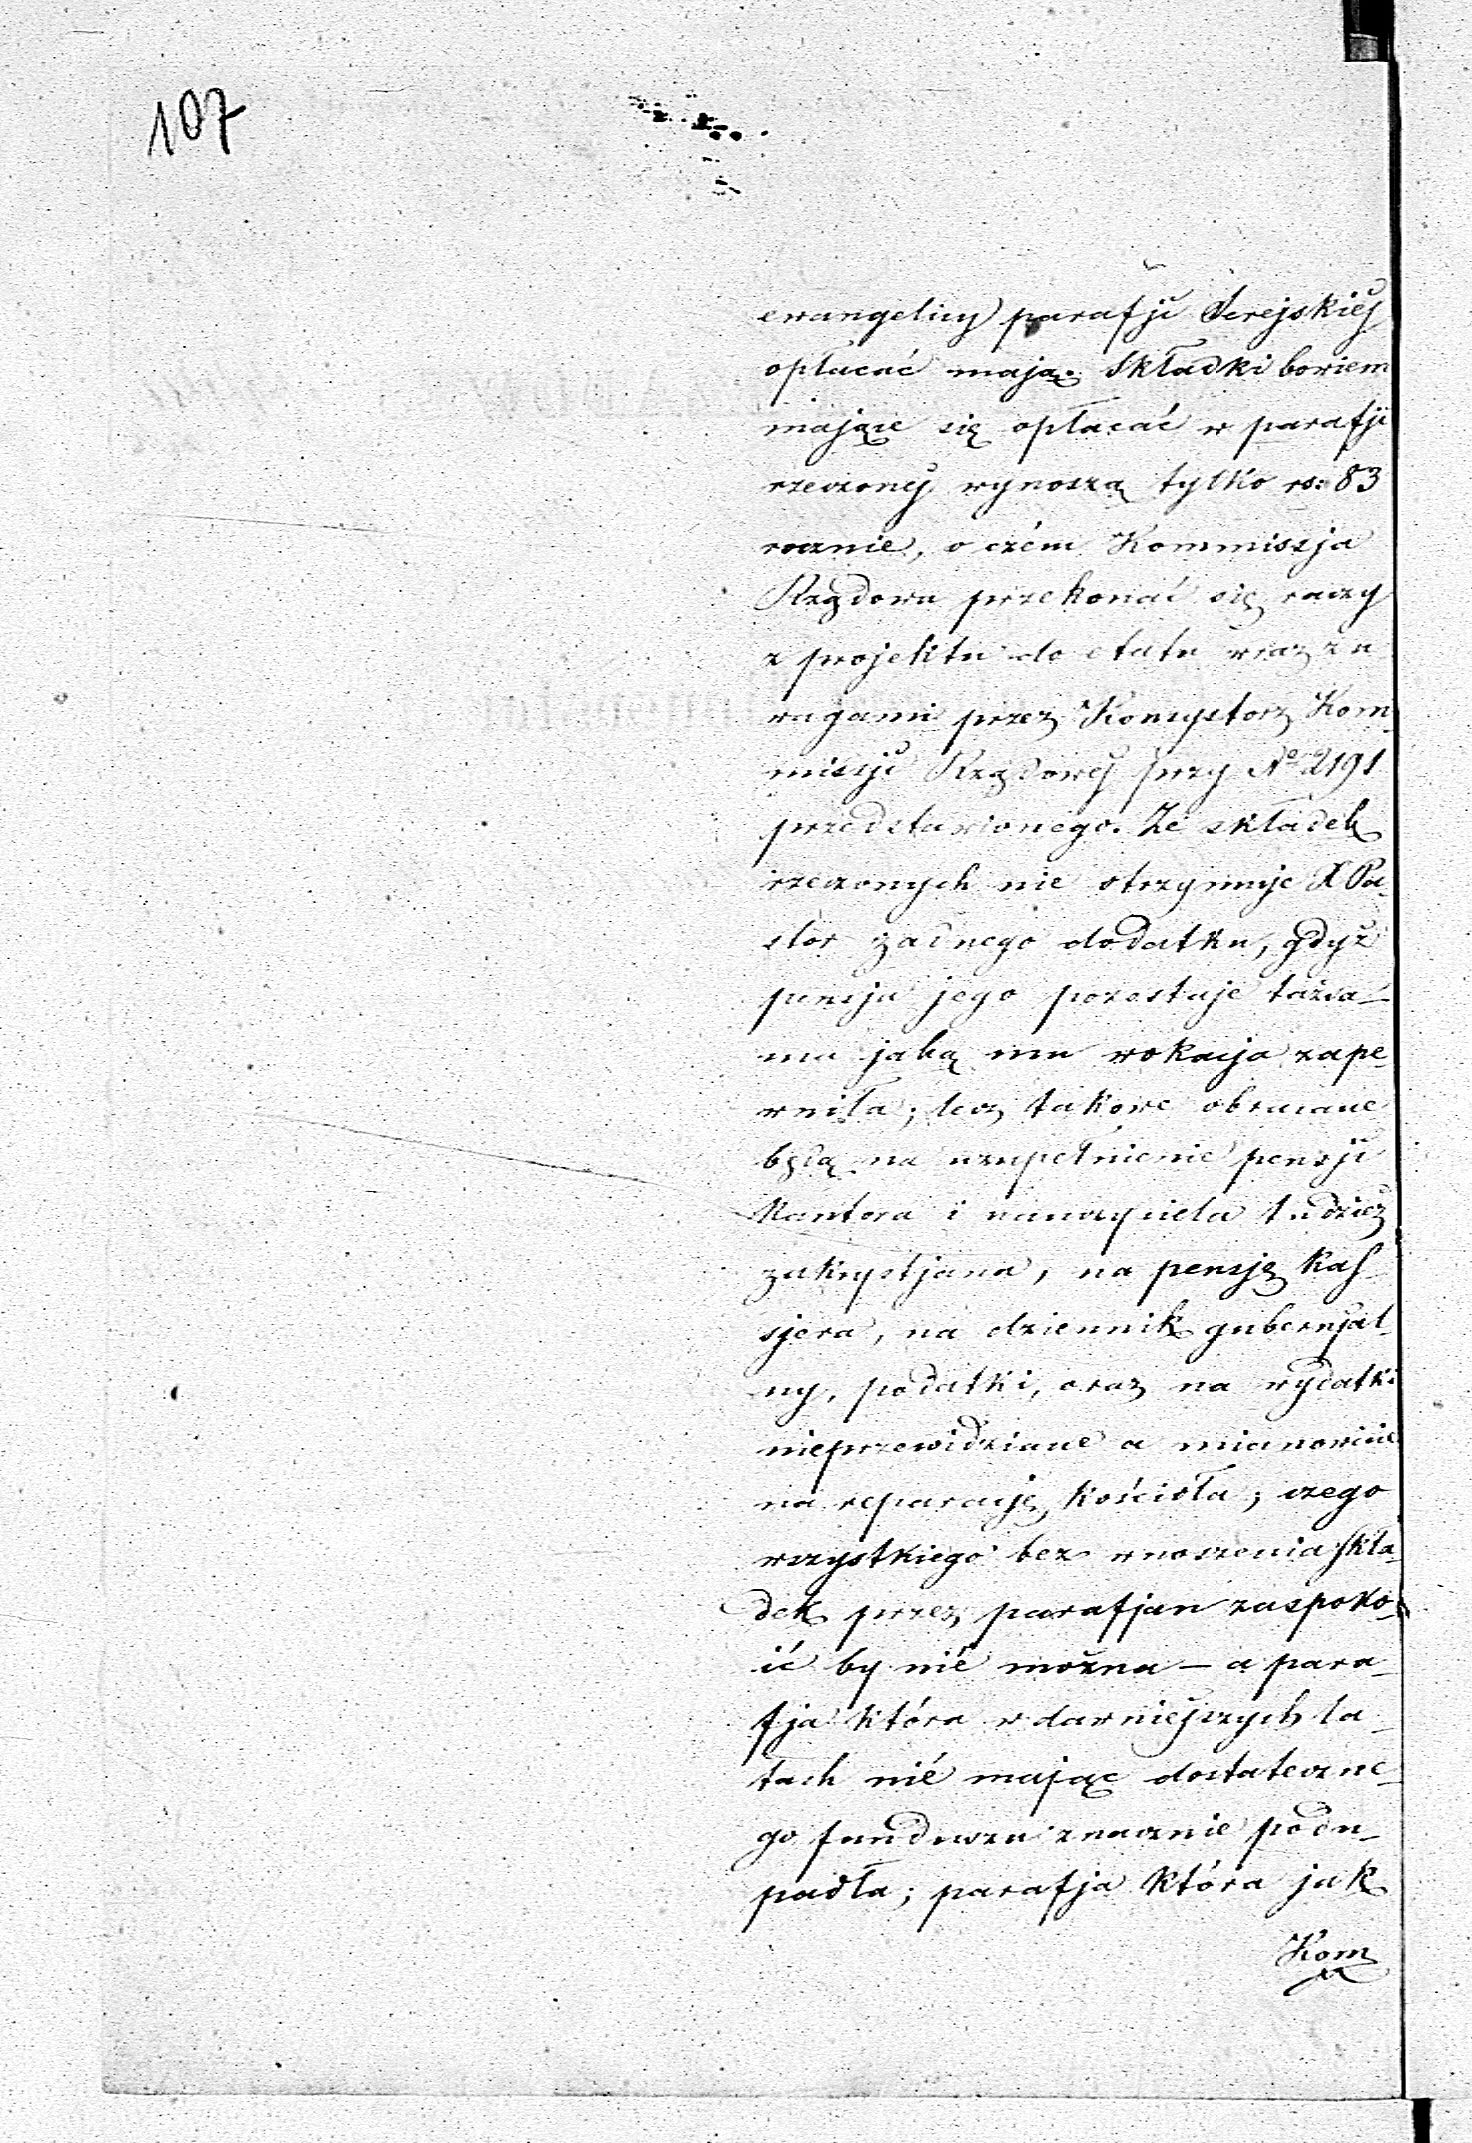 107
ewangelicy parafji Serejskiéj
opłacać mają. Składki bowiem
mające się opłacać w parafji
rzeczonéj wynoszą tylko rs: 83
rocznie, o czém Kommissja
Rządowa przekonać się raczy
z projektu do etatu wraz z u
wagami przez Konsystorz Kom-
missji Rządowéj przy No 2191
przedstawionego. Ze składek
rzeczonych nie otrzymuje X Pa-
stor żadnego dodatku, gdyż
pensja jego pozostaje taż sa-
ma jaką mu wokacja zape-
wniła; lecz takowe obracane
będą na uzupełnienie pensji
Kantora i nauczyciela tudzież
zakrystjana, na pensję kas-
sjera, na dziennik gubernjal-
ny, podatki, oraz na wydatki
nieprzewidziane a mianowicie
na reparację kościoła; czego
wszystkiego bez wnoszenia skła-
dek przez parafjan zaspoko-
ić by nié można — a para-
fja która w dawniejszych la-
tach nié mając dostateczne-
go funduszu znacznie podu-
padła; parafja która jak
Kom